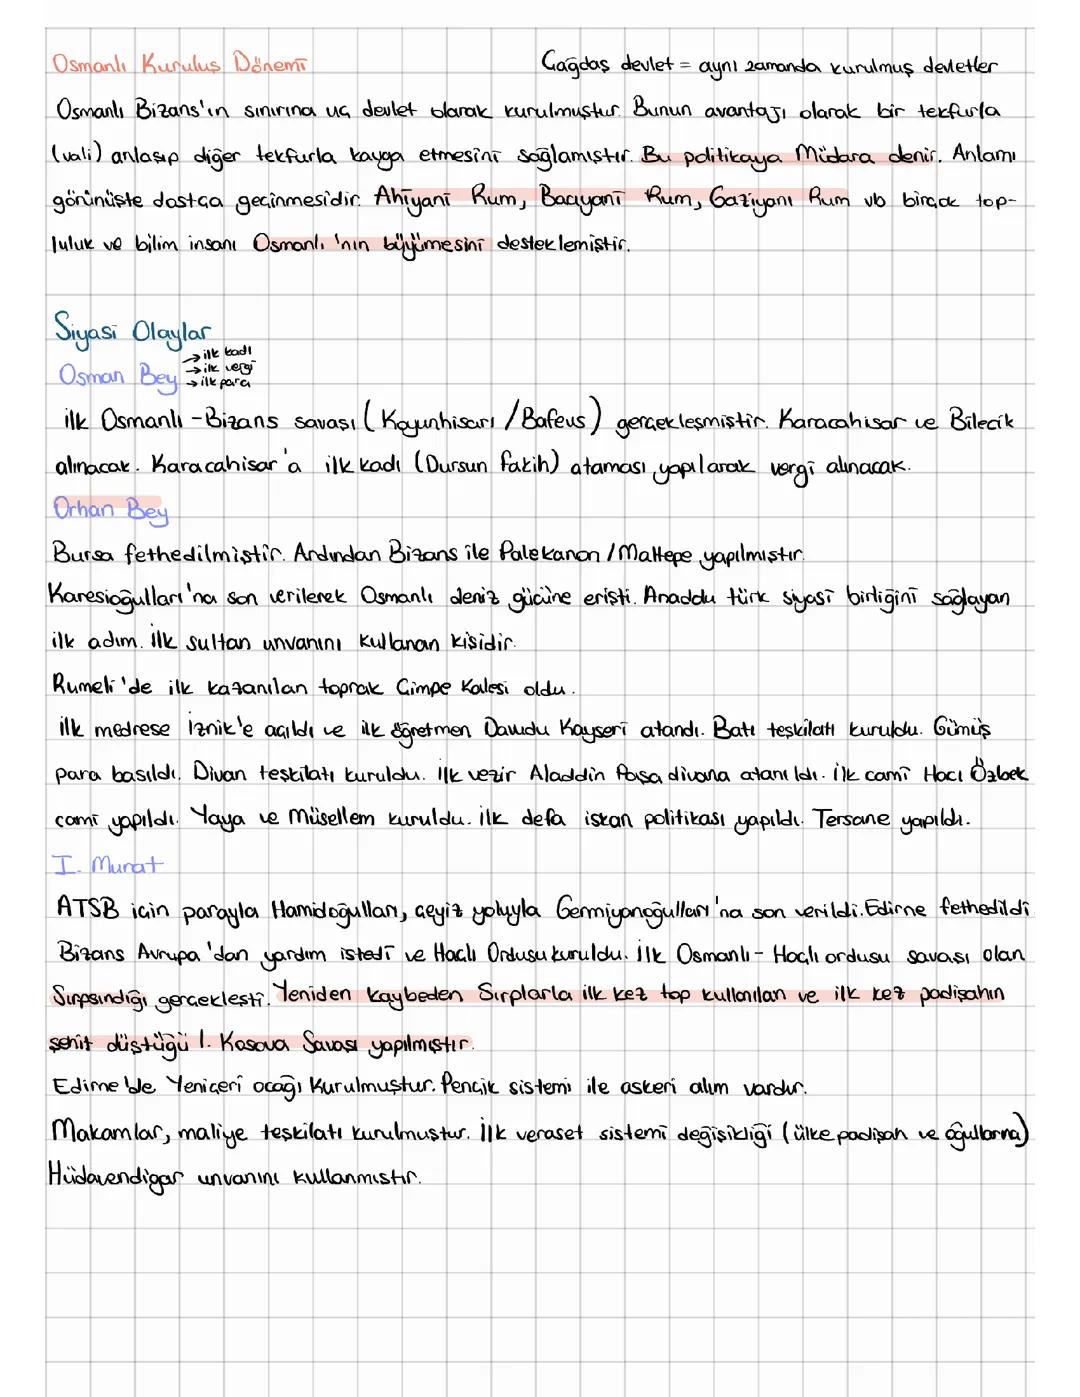 Osmanlı Kuruluş Dönemi
Çağdaş devlet = aynı zamanda kurulmuş devletler
Osmanlı Bizans'ın sınırına uç devlet olarak kurulmuştur. Bunun avantajı olarak bir tekfurla
(vali) anlaşıp diğer tekfurla kavga etmesini sağlamıştır. Bu politikaya Müdara denir. Anlamı
görünüşte dostça geçinmesidir. Ahiyani Rum, Bacıyani Rum, Gaziyanı Rum vb birçok top-
luluk ve bilim insanı Osmanlı'nın büyümesini desteklemiştir.
Siyasi Olaylar
Osman Bey
→ ilk kadı
→ ilk vergi
→ ilk para
ilk Osmanlı-Bizans savaşı (Koyunhisarı/Bafeus) gerçekleşmiştir. Karacahisar ve Bilecik
alınacak. Karacahisar'a ilk kadı (Dursun fakih) ataması yapılarak vergi alınacak.
Orhan Bey
Bursa fethedilmiştir. Ardından Bizans ile Palekanon/Maltepe yapılmıştır.
Karesioğulları'na son verilerek Osmanlı deniz gücüne erişti. Anadolu türk siyasi birliğini sağlayan
ilk adım. İlk sultan unvanını kullanan kişidir.
Rumeli'de ilk kazanılan toprak Çimpe Kalesi oldu.
ilk medrese İznik'e açıldı ve ilk öğretmen Davudu Kayseri atandı. Batı teşkilatı kuruldu. Gümüş
para basıldı. Divan teşkilatı kuruldu. İlk vezir Aladdin Paşa divana atanıldı. İlk cami Hacı Özbek
cami yapıldı. Yaya ve Müsellem kuruldu. ilk defa iskan politikası yapıldı. Tersane yapıldı.
I. Murat
ATSB için parayla Hamidoğulları, çeyiz yoluyla Germiyanoğulları'na son verildi. Edirne fethedildi
Bizans Avrupa'dan yardım istedi ve Haçlı Ordusu kuruldu. İlk Osmanlı-Haçlı ordusu savaşı olan
Sırpsındığı gerçekleşti. Yeniden kaybeden Sırplarla ilk kez top kullanılan ve ilk kez padişahın
şehit düştüğü I. Kosova Savaşı yapılmıştır.
Edirne'de Yeniçeri ocağı kurulmuştur. Pençik sistemi ile askeri alım vardır.
Makamlar, maliye teşkilatı kurulmuştur. İlk veraset sistemi değişikliği (ülke padişah ve oğullarına)
Hüdavendigar unvanını kullanmıştır.